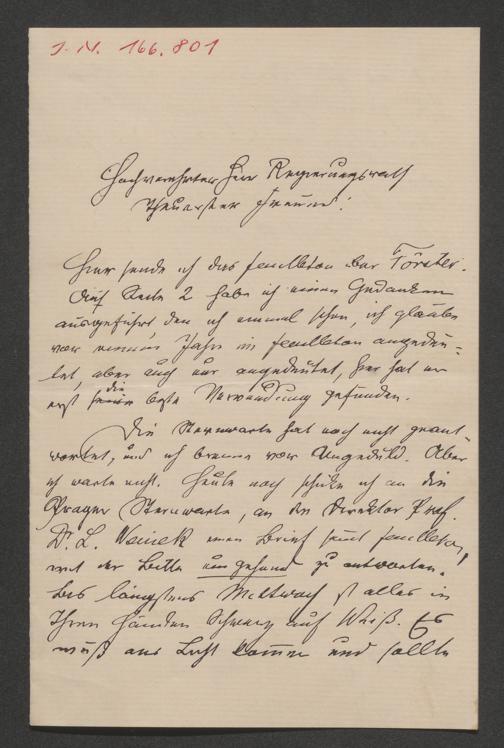 J. N. 166.801
Hochverehrter Herr Regierungsrath
theuerster Freund!
Hier sende ich das Feuilleton über Förster.
Auf Seite 2 habe ich einen Gedanken
ausgeführt, den ich einmal schon, ich glaube
vor einem Jahr im Feuilleton angedeu-
tet, aber auch nur angedeutet, hier hat er
erst die beste Verwendung gefunden.
Die Sternwarte hat noch nicht geant-
wortet, und ich brenne vor Ungeduld. Aber
ich warte nicht. Heute noch schicke ich an die
Prager Sternwarte, an den Direktor Prof.
Dr. L. Weinek einen Brief samt Feuilleton,
mit der Bitte umgehend zu antworten.
Bis längstens Mittwoch ist alles in
Ihren Händen Schwarz auf Weiß. Es
muß ans Licht kommen und sollte